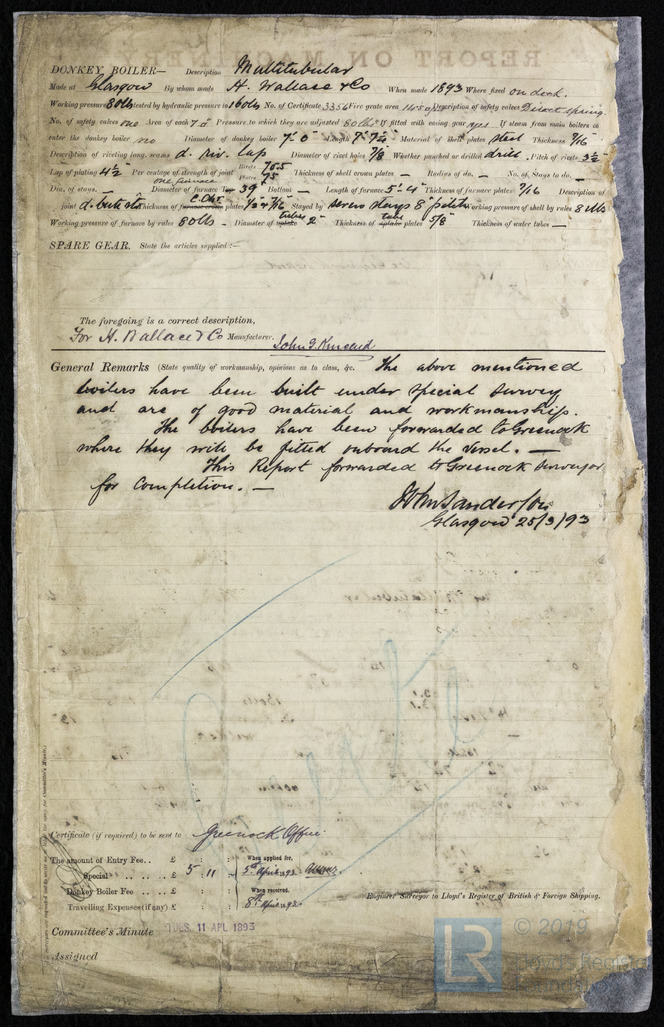 DONKEY BOILER— Description Multitubular
Made at Glasgow By whom made H. Wallace & Co When made 1893 Where fixed on deck.
Working pressure 80 lbs tested by hydraulic pressure to 160 lbs No. of Certificate 3356 Fire grate area Description of safety valves Direct spring
No. of safety valves one Area of each 7 Pressure to which they are adjusted 80 lbs If fitted with easing gear yes If steam from main boilers can
enter the donkey boiler no Diameter of donkey boiler 7' 0" Length Material of shell plates steel Thickness 9/16
Description of riveting long. seams d. riv. lap Diameter of rivet holes 7/8 Whether punched or drilled drill. Pitch of rivets 3½
Lap of plating 4½ Per centage of strength of joint Rivets 70.5 Plates 75 Thickness of shell crown plates — Radius of do. — No. of Stays to do. —
Dia. of stays. — Diameter of furnace Top 39" Bottom — Length of furnace 5'. 4" Thickness of furnace plates 7/16 Description of
joint d. butt st Thickness of furnace crown plates Stayed by screw stays 8" pitch Working pressure of shell by rules 81 lbs
Working pressure of furnace by rules 80 lbs. Diameter of uptake tubes 2" Thickness of uptake tube plates 5/8 Thickness of water tubes —
SPARE GEAR. State the articles supplied:—
The foregoing is a correct description,
For H. Wallace & Co Manufacturer. John G. Kincaid
General Remarks (State quality of workmanship, opinions as to class, &c. The above mentioned
boilers have been built under special survey
and are of good material and workmanship.
The boilers have been forwarded to Greenock
where they will be fitted onboard the vessel. —
This Report forwarded to Greenock Surveyor
for completion. —
John Sanderson
Glasgow 25/3/93
Certificate (if required) to be sent to Greenock Office.
The amount of Entry Fee . . £ : : When applied for,
Special . . . . . £ 5 : 11 : 5th April 1893
Donkey Boiler Fee . . . £ : : When received,
Travelling Expenses (if any) £ : : 8th April 1893.
Engineer Surveyor to Lloyd's Register of British & Foreign Shipping.
Committee's Minute TUES. 11 APL 1893
Assigned
LR © 2019
Lloyd's Register
Foundation